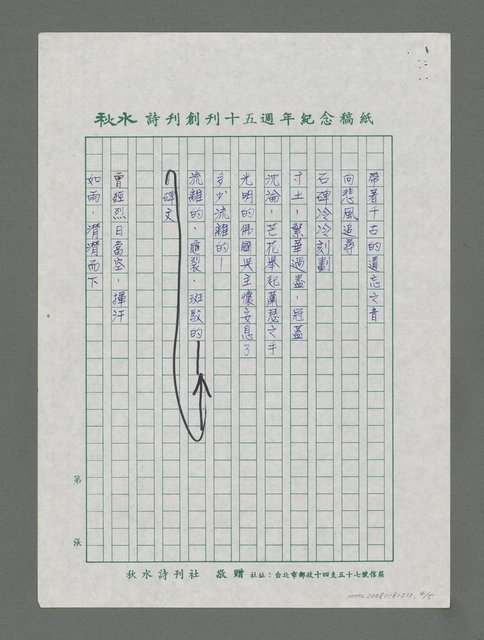 秋水詩刊創刊十五週年紀念稿紙
帶著千古的遺忘之音
向悲風追尋
石碑冷冷刻劃
寸土，繁華過盡，冠蓋
沉淪，芒花舉起蕭瑟之手
光明的佛國與主懷安息了
多少流離的！
流離的、龜裂、斑駁的
碑文
曾經烈日當空，揮汗
如雨，潸潸而下
第
張
秋水詩刊社 敬贈 社址：台北市郵政十四支五十七號信箱